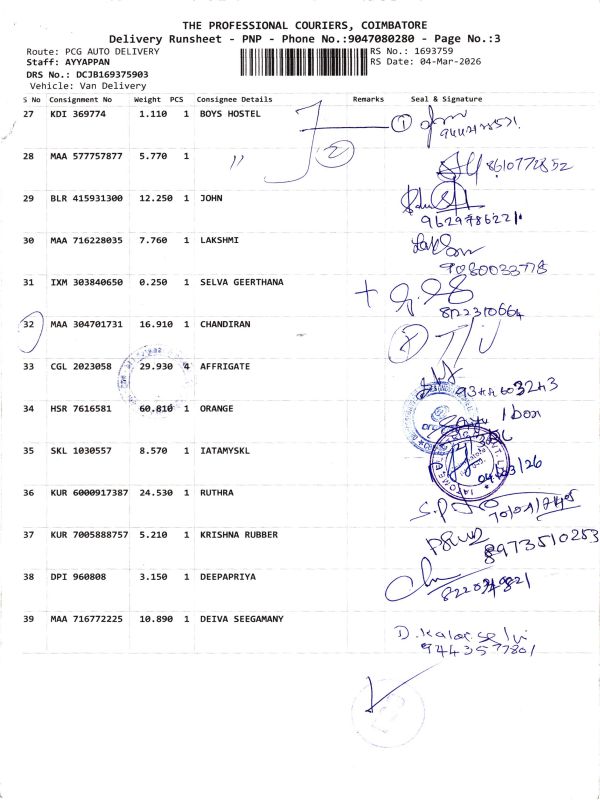 THE PROFESSIONAL COURIERS, COIMBATORE
Delivery Runsheet - PNP - Phone No.:9047080280 - Page No.:3
Route: PCG AUTO DELIVERY
RS No.: 1693759
Staff: AYYAPPAN
RS Date: 04-Mar-2026
DRS No.: DCJB169375903
Vehicle: Van Delivery
S No Consignment No Weight PCS Consignee Details Remarks Seal & Signature
27 KDI 369774 1.110 1 BOYS HOSTEL 1
28 MAA 577757877 5.770 1 " 2 8610772852
29 BLR 415931300 12.250 1 JOHN
9629786221
30 MAA 716228035 7.760 1 LAKSHMI
9080033778
31 IXM 303840650 0.250 1 SELVA GEERTHANA
8122310664
32 MAA 304701731 16.910 1 CHANDIRAN
33 CGL 2023058 29.930 4 AFFRIGATE
34 HSR 7616581 60.810 1 ORANGE 1 box
35 SKL 1030557 8.570 1 IATAMYSKL
04/03/26
36 KUR 6000917387 24.530 1 RUTHRA
37 KUR 7005888757 5.210 1 KRISHNA RUBBER
8973510253
38 DPI 960808 3.150 1 DEEPAPRIYA
39 MAA 716772225 10.890 1 DEIVA SEEGAMANY
D. Kalai selvi
9443577801